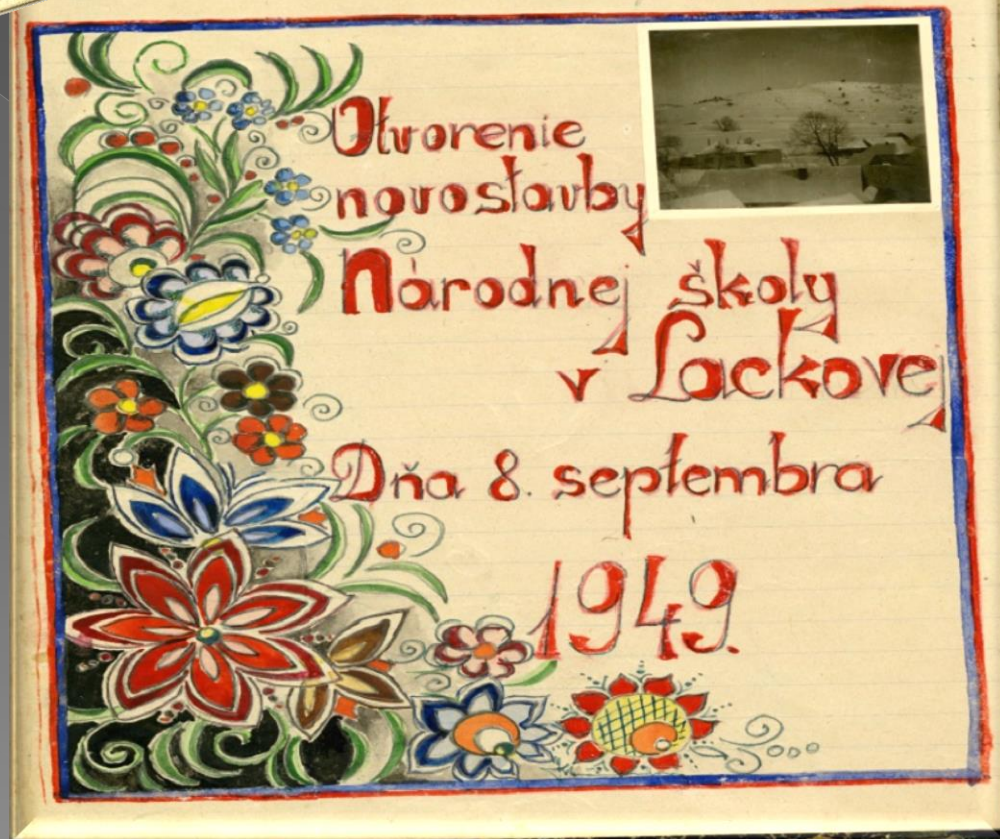 Otvorenie
novostavby
Národnej školy
v Lackovej
Dňa 8. septembra
1949.